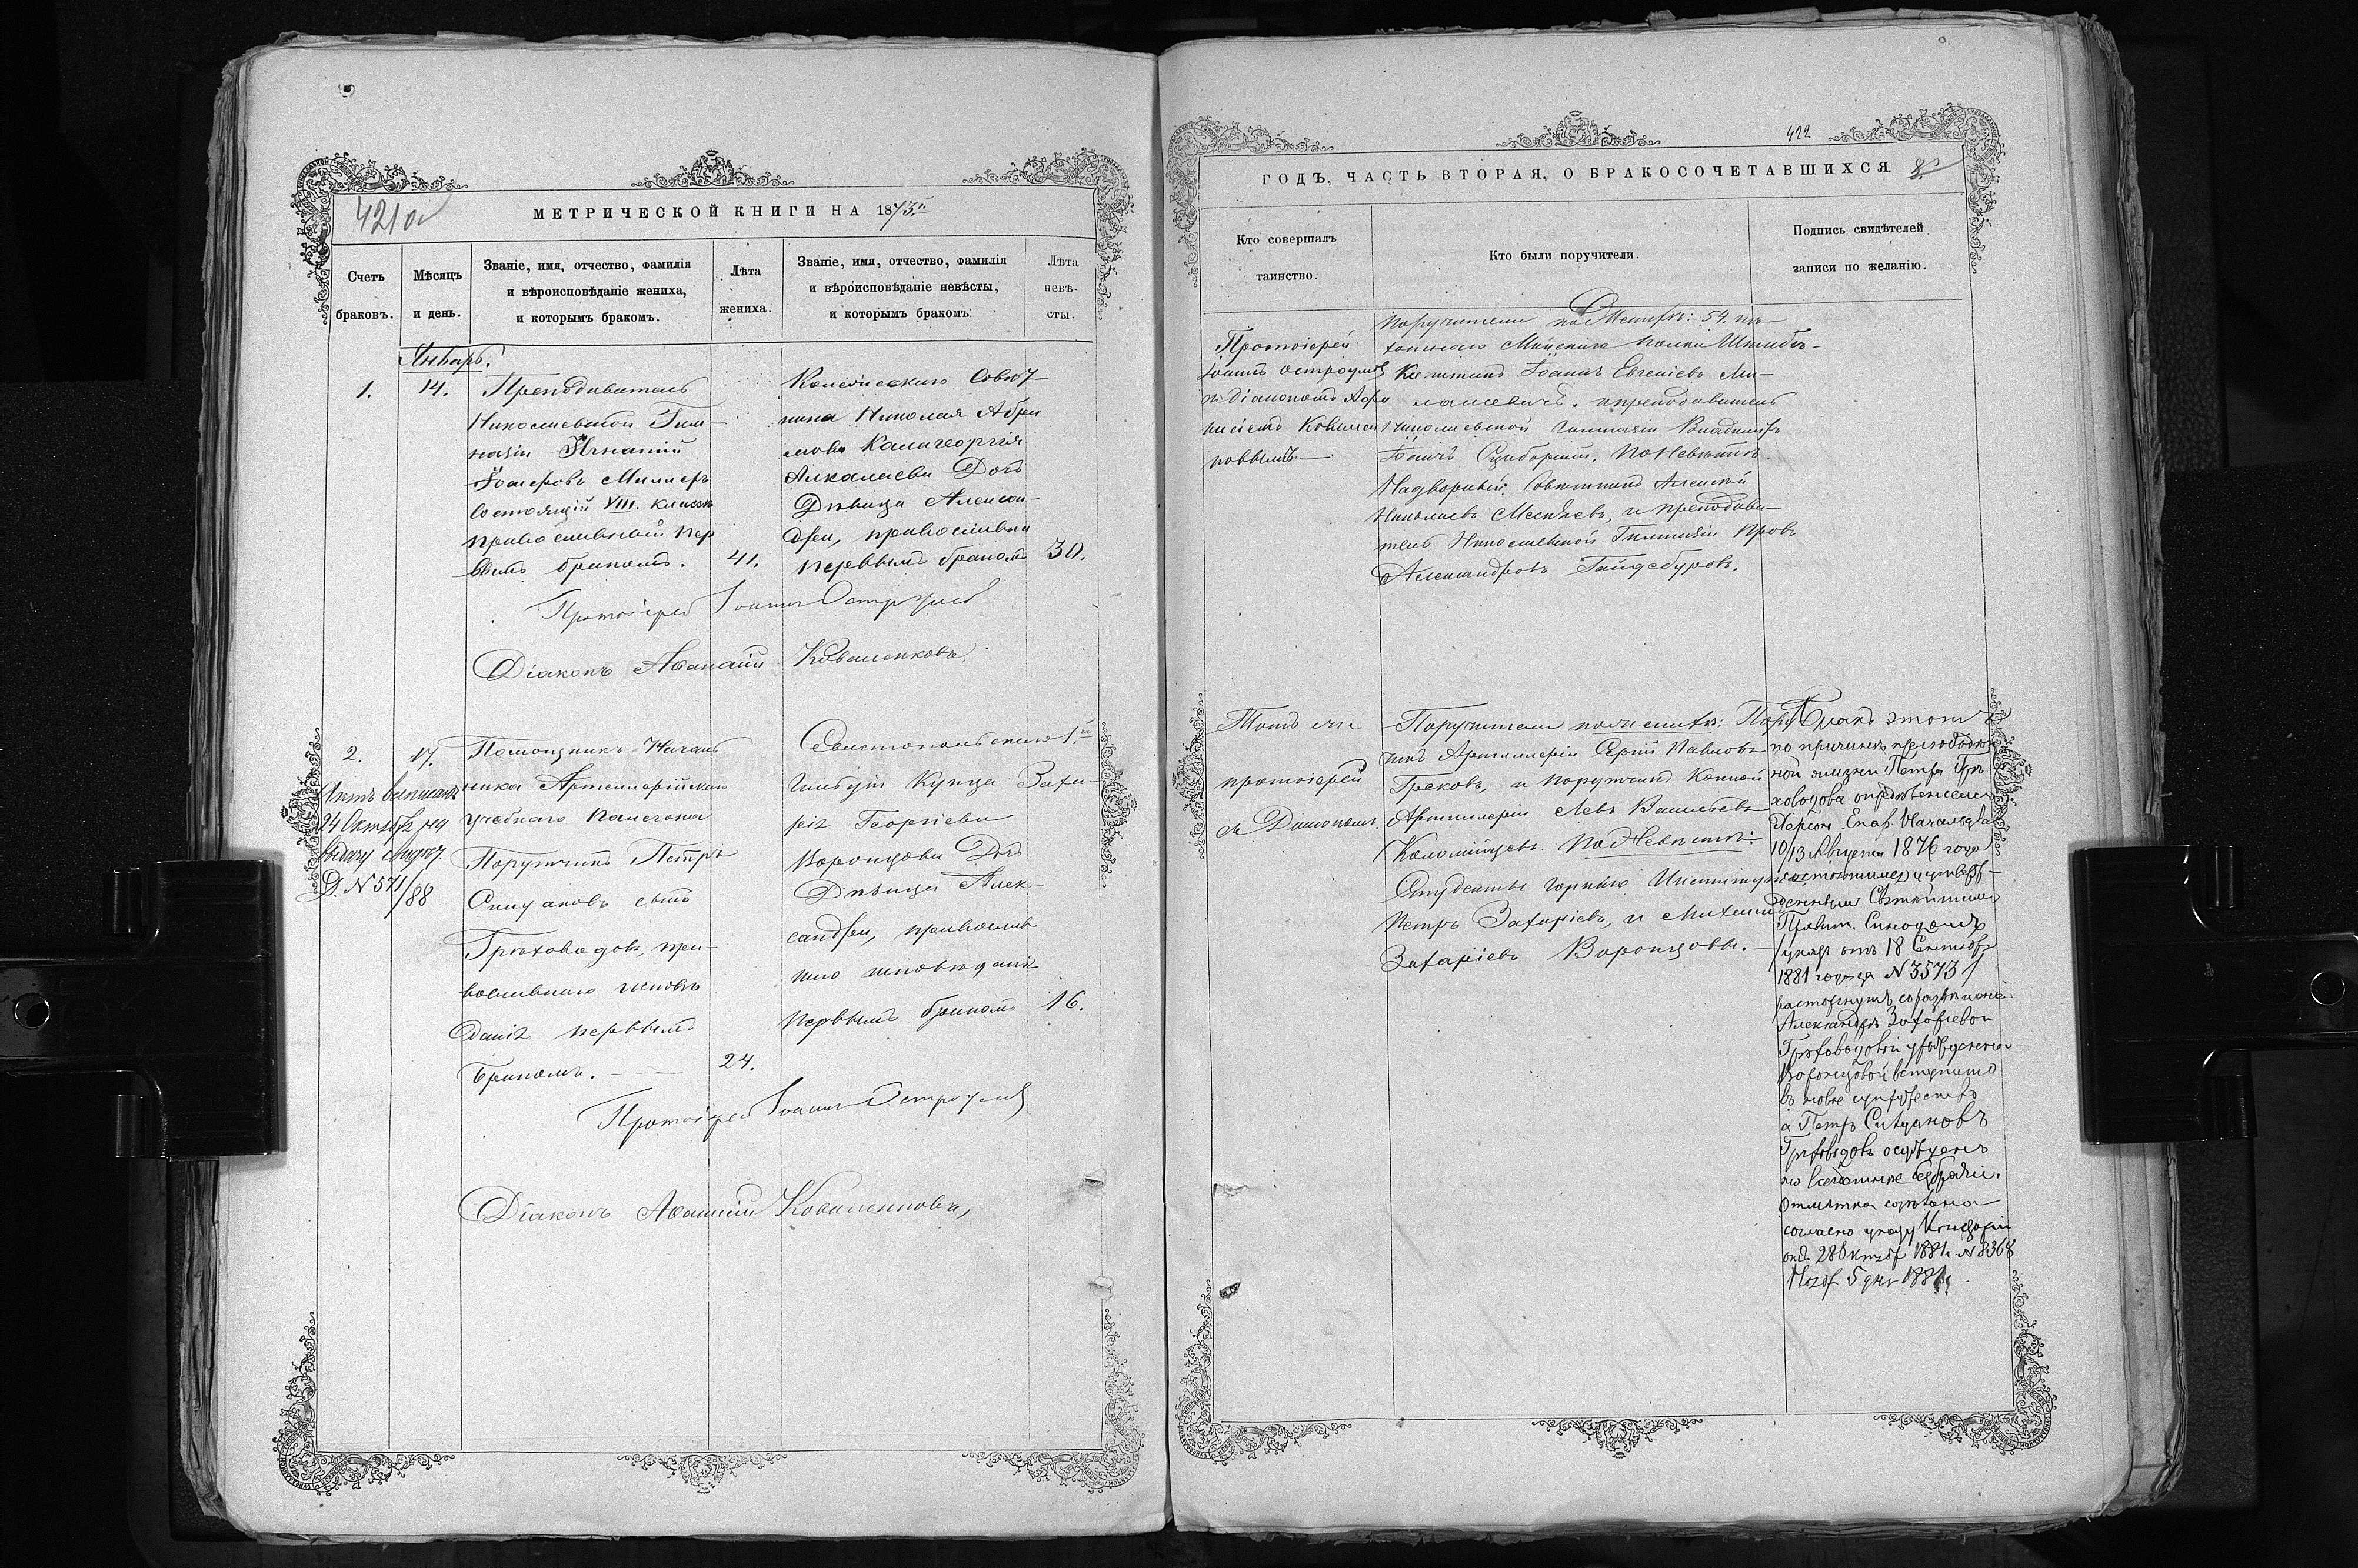 421 об
МЕТРИЧЕСКОЙ КНИГИ НА 1873й
Счетъ браковъ.
Мѣсяцъ и день.
Званіе, имя, отчество, фамилія
и вѣроисповѣданіе жениха,
и которымъ бракомъ.
Лѣта жениха.
Званіе, имя, отчество, фамилія
и вѣроисповѣданіе невѣсты,
и которымъ бракомъ
Лѣта невѣ-
сты.
Январь.
1.
14.
Преподаватель
Николаевской Гим-
назіи Игнатій
Іосифовъ Миллеръ
состоящій VIII. класса
православный пер
вымъ бракомъ.
41.
Коллежскаго Совѣт
ника Николая
Калагеоргія
Алкалаева Дочь
Дѣвица Алексан-
дра, православна
первымъ бракомъ
30.
Протоіерей Іоаннъ Остроумовъ
Діаконъ Аѳанасій Коваленковъ
2.
17.
Актъ выписанъ
24 Октября на
выдачу
Д. N 571/88
Помощникъ Началь
ника Артиллерійскаго
учебнаго полигона
Поручикъ Петръ
сынъ
Грѣховодовъ, пра-
вославнаго исповѣ
данія первымъ
бракомъ.
24.
Севастопольскаго 1й
гильдіи Купца Заха-
рія Георгіева
Воронцова Дочь
Дѣвица Алек-
сандра, православ
наго исповѣданія
первымъ бракомъ
16.
Протоіерей Іоаннъ Остроумовъ
Діаконъ Аѳанасій Коваленковъ,
422
ГОДЪ, ЧАСТЬ ВТОРАЯ, О БРАКОСОЧЕТАВШИХСЯ
8
Кто совершалъ
таинство.
Кто были поручители.
Подпись свидѣтелей
записи по желанію.
Протоіерей
Іоаннъ Остроумовъ
съ Діакономъ Аѳа
насіемъ Ковален
ковымъ
Поручители по Женихѣ: 54. пѣ
хотнаго Минскаго полка Штабсъ-
Капитанъ Іоаннъ Евгеніевъ Ми-
лашевичъ. и преподаватель
Николаевской гимназіи Владиміръ
Іоаннъ Сциборскій. По Невѣстѣ.
Надворный Совѣтникъ Алексѣй
Николаевъ и преподава-
тель Николаевской Гимназіи Провъ
Александровъ Гайдебуровъ.
Тотъ же
протоіерей
съ Діакономъ.
Поручители по женихѣ: Пору
чикъ Артиллеріи Сергій Павловъ
Грековъ, и Поручикъ Конной
Артиллеріи Левъ Васильевъ
Коломійцевъ. По Невѣстѣ:
Студенты горнаго Института
Петръ Захаріевъ, и Михаилъ
Захаріевъ Воронцовы.
Бракъ этотъ
по причинѣ прелюбодѣй
ной жизни Петра Грѣ
ховодова опредѣленіемъ
Херсон. Епар. Начальства
10/13 Августа 1876 года
состоявшемся и утверж-
деннымъ Святѣйшимъ
Правит. Синодомъ
/указъ отъ 18 Сентября
1881 года за N 3573/
расторгнутъ съ разрѣшеніемъ
Александрѣ Захаріевой
Грѣховодовой урожденной
Воронцовой вступить
въ новое супружество
а Петръ
Грѣховодовъ осужденъ
на всегдашнее безбрачіе.
Отмѣтка сдѣлана
согласно указу Консисторіи
отъ 28 Октяб 1881 N 8368
Нояб 5 дня 1881 г.